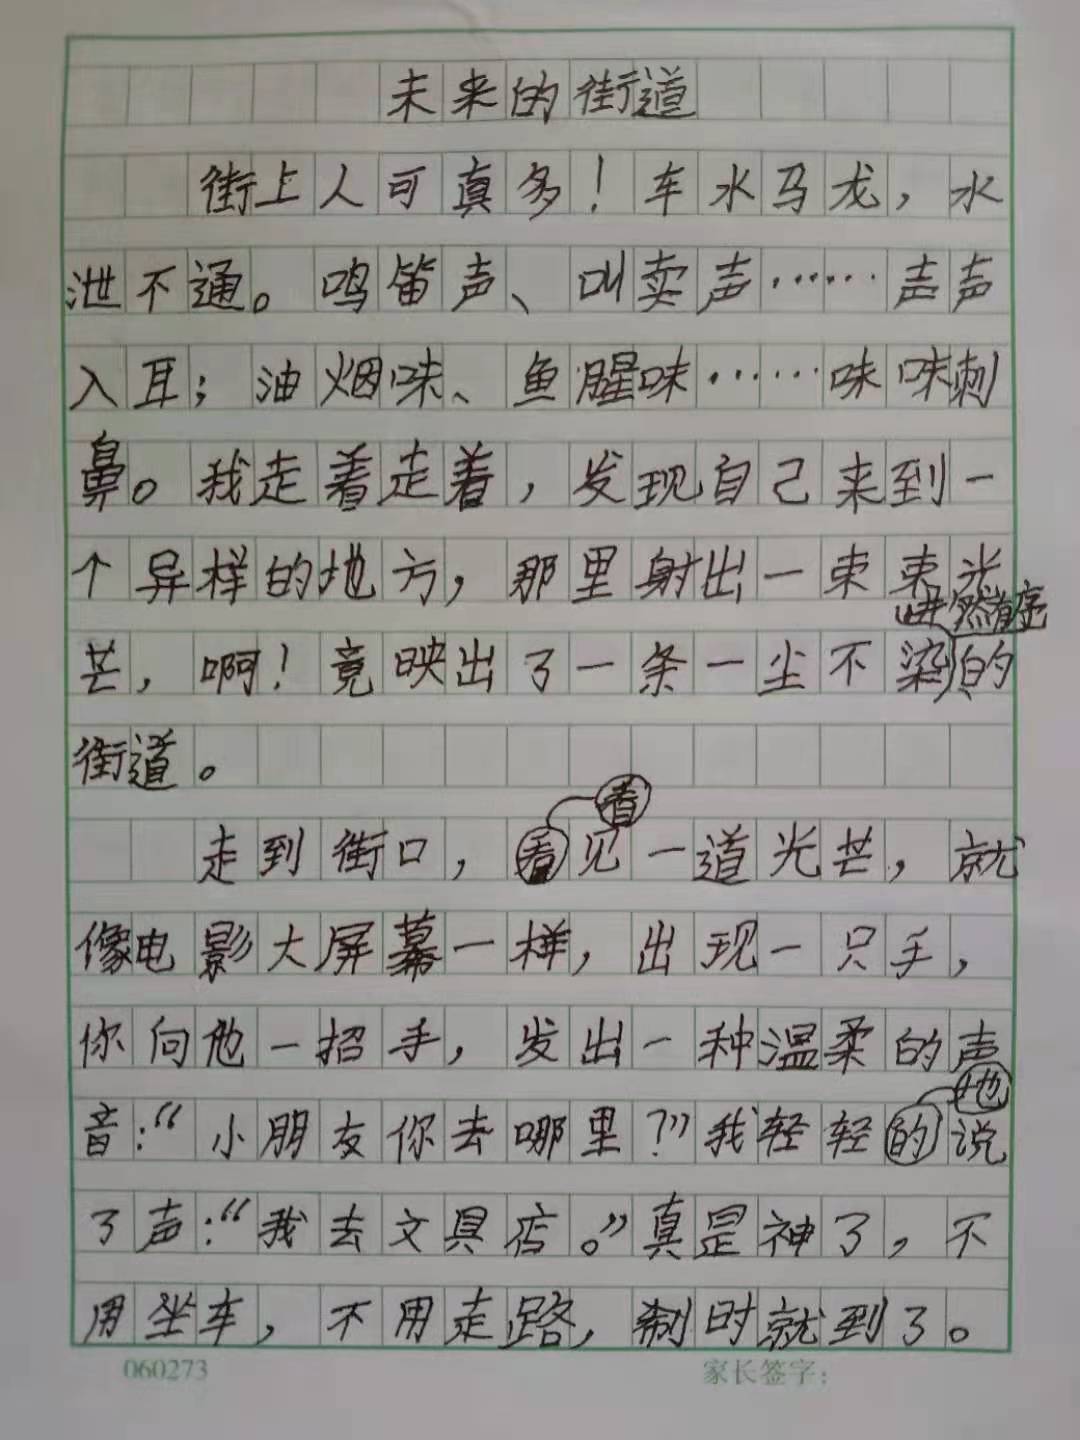 未来的街道
街上人可真多！车水马龙，水
泄不通。鸣笛声、叫卖声……声声
入耳；油烟味、鱼腥味……味味刺
鼻。我走着走着，发现自己来到一
个异样的地方，那里射出一束束光
井然有序
芒，啊！竟映出了一条一尘不染、的
街道。
看
走到街口，看见一道光芒，就
像电影大屏幕一样，出现一只手，
你向他一招手，发出一种温柔的声
地
音：“小朋友你去哪里？”我轻轻的说
了声：“我去文具店。”真是神了，不
用坐车，不用走路，刹时就到了。
060273
家长签字：